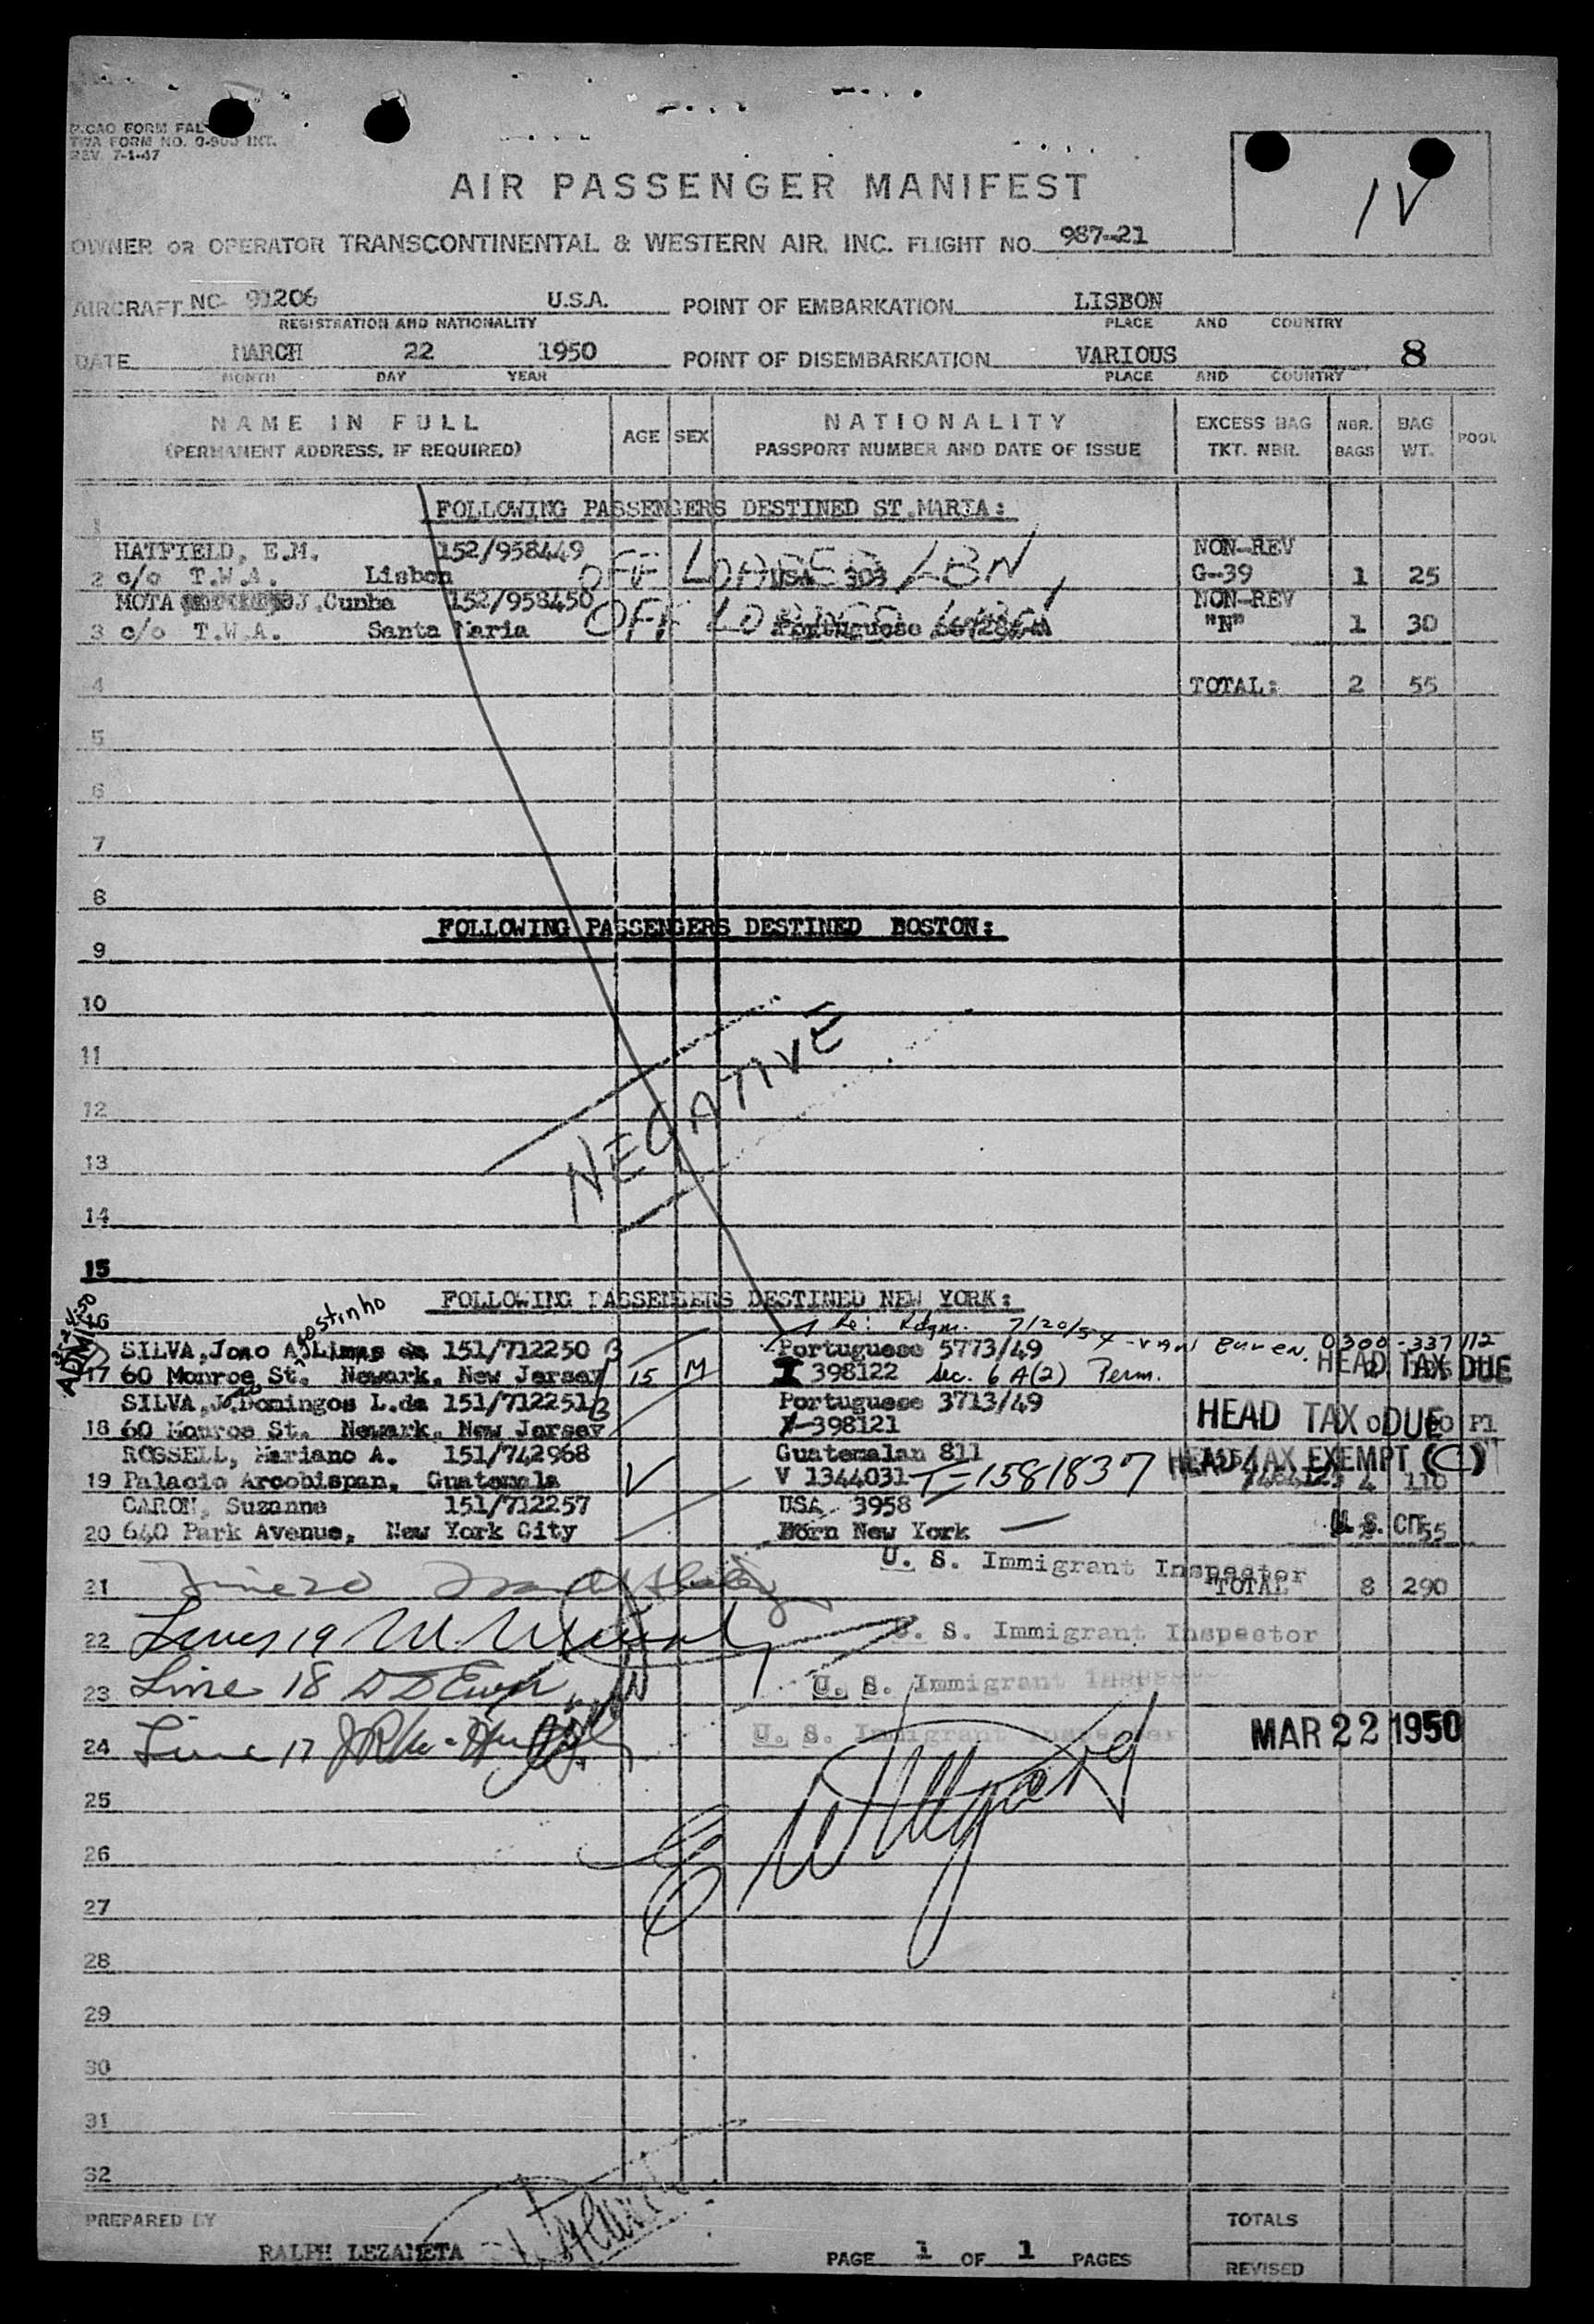 TWA FORM NO. 0-900 INT.
REV. 7-1-47
1V
AIR PASSENGER MANIFEST
OWNER OR OPERATOR TRANSCONTINENTAL & WESTERN AIR, INC. FLIGHT NO. 987-21
AIRCRAFT NC- 91206 U.S.A. POINT OF EMBARKATION LISBON
REGISTRATION AND NATIONALITY PLACE AND COUNTRY
DATE MARCH 22 1950 POINT OF DISEMBARKATION VARIOUS 8
MONTH DAY YEAR PLACE AND COUNTRY
NAME IN FULL AGE SEX NATIONALITY EXCESS BAG NBR. BAG POOL
(PERMANENT ADDRESS, IF REQUIRED) PASSPORT NUMBER AND DATE OF ISSUE TKT. NBR. BAGS WT.
1 FOLLOWING PASSENGERS DESTINED ST.MARIA:
HATFIELD, E.M. 152/958449 OFF LOADED LBN NON-REV
2 c/o T.W.A. Lisbon USA 303 G-39 1 25
MOTA J.Cunha 152/958450 OFF LOADED NON-REV
3 c/o T.W.A. Santa Maria Portuguese "N" 1 30
4 TOTAL: 2 55
5
6
7
8
FOLLOWING PASSENGERS DESTINED BOSTON:
9
10
11
NEGATIVE
12
13
14
15
FOLLOWING PASSENGERS DESTINED NEW YORK:
16
ADM
gostinho
7/20/54 - Van Buren. 0300-337112
SILVA, Joao A. Limas da 151/712250 B Portuguese 5773/49
17 60 Monroe St. Newark, New Jersey 15 M I 398122 Sec. 6 A(2) Perm. HEAD TAX DUE
SILVA, J. Domingos L.da 151/712251 B Portuguese 3713/49
18 60 Monroe St. Newark, New Jersey 398121 HEAD TAX DUE
ROSSELL, Mariano A. 151/742968 Guatemalan 811 HEAD TAX EXEMPT (C)
19 Palacio Arcobispan, Guatemala V V 1344031 T-1581837 4 110
CARON, Suzanne 151/712257 USA 3958
20 640 Park Avenue, New York City Born New York U.S. CIT 55
U. S. Immigrant Inspector
21 TOTAL 8 290
22 Lines 19 U. S. Immigrant Inspector
23 Line 18 U. S. Immigrant
24 Line 17 U. S. Immigrant Inspector MAR 22 1950
25
26
27
28
29
30
31
32
PREPARED BY TOTALS
RALPH LEZAMETA PAGE 1 OF 1 PAGES
REVISED